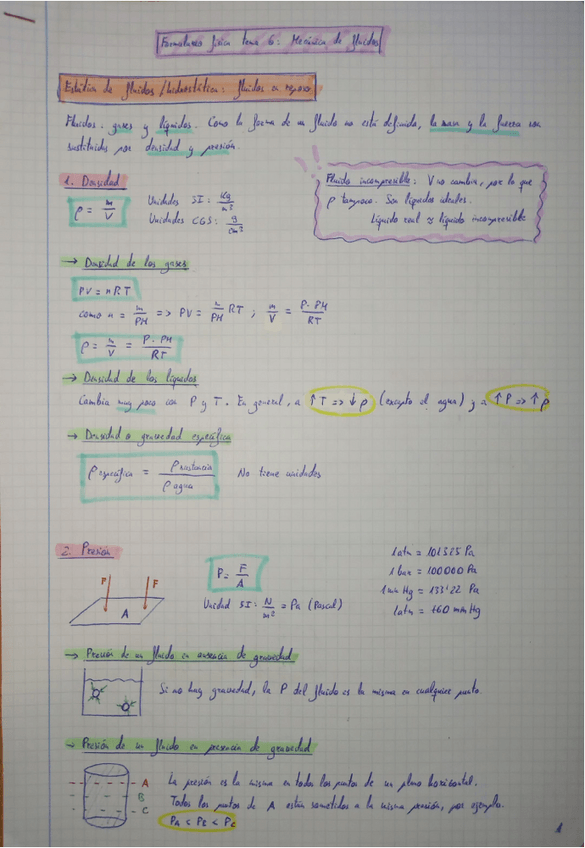 Formulario física tema 6: Mecánica de fluidos
Estática de fluidos / hidrostática: fluidos en reposo
Fluidos: gases y líquidos. Como la forma de un fluido no está definida, la masa y la fuerza son
sustituidas por densidad y presión.
1. Densidad
ρ = m/V
Unidades SI: Kg/m³
Unidades CGS: g/cm³
Fluido incompresible: V no cambia, por lo que
ρ tampoco. Son líquidos ideales.
Líquido real ≈ líquido incompresible
→ Densidad de los gases
PV = nRT
como n = m/PM => PV = m/PM RT ; m/V = P·PM/RT
ρ = m/V = P·PM/RT
→ Densidad de los líquidos
Cambia muy poco con P y T. En general, a ↑T => ↓ρ (excepto el agua) y a ↑P => ↑ρ
→ Densidad o gravedad específica
ρ específica = ρ sustancia / ρ agua
No tiene unidades
2. Presión
F F
A
P = F/A
Unidad SI: N/m² = Pa (Pascal)
1 atm = 101325 Pa
1 bar = 100000 Pa
1 mm Hg = 133'22 Pa
1 atm = 760 mm Hg
→ Presión de un fluido en ausencia de gravedad
Si no hay gravedad, la P del fluido es la misma en cualquier punto.
→ Presión de un fluido en presencia de gravedad
A
B
C
La presión es la misma en todos los puntos de un plano horizontal.
Todos los puntos de A están sometidos a la misma presión, por ejemplo.
PA < PB < PC
1